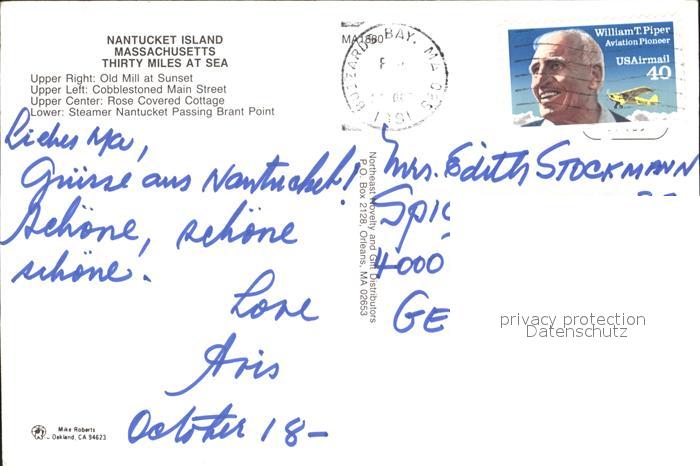 NANTUCKET ISLAND
MASSACHUSETTS
THIRTY MILES AT SEA
Upper Right: Old Mill at Sunset
Upper Left: Cobblestoned Main Street
Upper Center: Rose Covered Cottage
Lower: Steamer Nantucket Passing Brant Point
BUZZARDS BAY, MA 026
William T. Piper
Aviation Pioneer
USAirmail
40
Grüsse aus Nantucket!
schöne, schöne
schöne.
Love
October 18-
Mrs. Edith STOCKMANN
SPIC
4000
GE
Northeast Novelty and Gift Distributors
P.O. Box 2128, Orleans, MA 02653
privacy protection
Datenschutz
Mike Roberts
Oakland, CA 94623